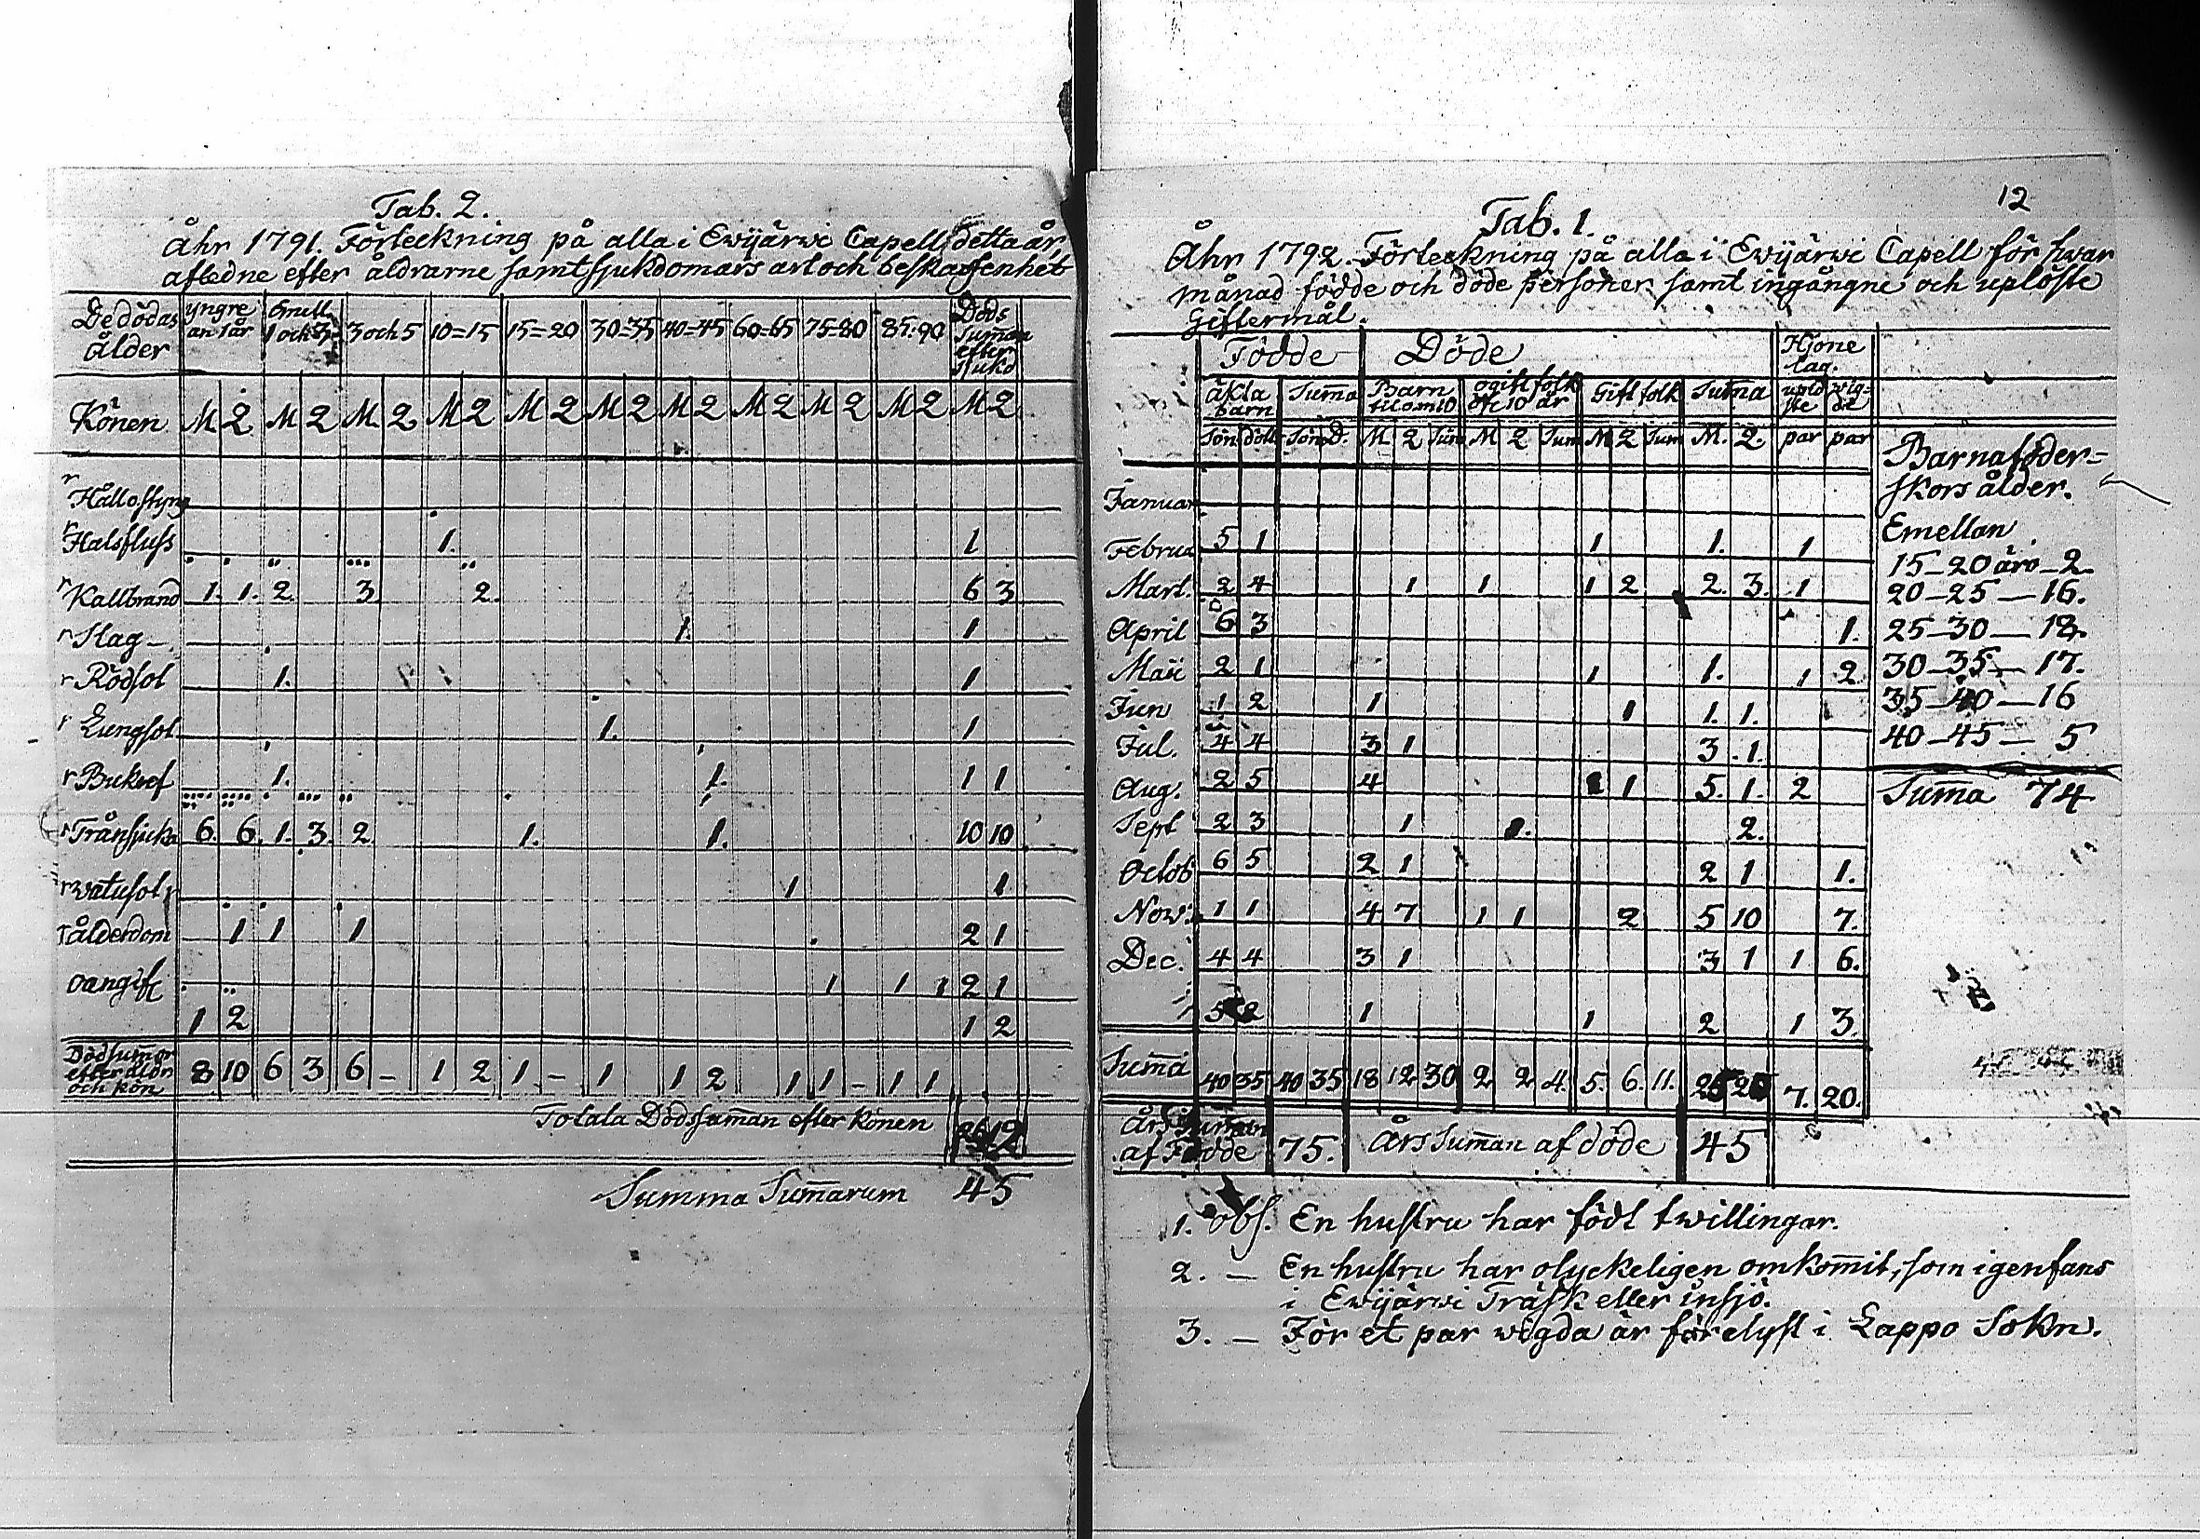 Tab. 2.
Åhr 1791. Förteckning på alla i Ewijärwi Capell detta år
afledne efter åldrarne samt sjukdomars art och beskaffenhet
De dödas ålder yngre än 1 år Emell. 1 och 3 3 och 5 10=15 15=20 30=35 40=45 60=65 75=80 85:90 Döds Summan efter sjukd
Könen M Q M Q M Q M Q M Q M Q M Q M Q M Q M Q M Q
Håll o. styng
Halsfluss 1. 1
Kallbrand 1. 1. 2 3 2. 6 3
Slag 1. 1
Rödsot 1. 1
Lungsot 1. 1
Bukref 1. 1. 1 1
Trånsjuka 6. 6. 1. 3. 2 1. 1. 10 10
watusot 1 1
ålderdom 1 1 1 2 1
oangifc 1 1 1 2 1
1 2 1 2
Dödsummor efter ålder och kön 8 10 6 3 6 – 1 2 1 – 1 1 2 1 1 – 1 1
Totala Dödssumman efter könen
Summa Summarum 45
12
Tab. 1.
Åhr 1792. Förteckning på alla i Ewijärwi Capell för hwar
månad födde och döde personer samt ingångne och uplöste
Giftermål.
Födde Döde Hjone lag.
äkta barn Summa Barn til om 10 ogift folk öfr 10 år Gift folk Summa uplö ste wig= de
Sön dött Sön D. M Q Sum M Q Sum M Q Sum M. Q. par par
Januar
Februa 5 1 1 1. 1
Mart. 2 4 1 1 1 2 2. 3. 1
April 6 3 1.
Maii 2 1 1 1. 1 2
Jun 1 2 1 1 1. 1.
Jul. 4 4 3 1 3. 1.
Aug. 2 5 4 1 1 5. 1. 2
Sept 2 3 1 1. 2.
Octob 6 5 2 1 2 1 1.
Now: 1 1 4 7 1 1 2 5 10 7.
Dec. 4 4 3 1 3 1 1 6.
5 2 1 1 2 1 3.
Summa 40 35 40 35 18 12 30 2 2 4. 5. 6. 11. 25 20 7. 20.
Års Summan af Födde 75. Års Summan af döde 45
Barnaföder=
skors ålder.
Emellan
15–20 äro–2
20–25–16.
25–30–18.
30–35–17.
35–40–16
40–45–5
Summa 74
1. obs. En hustru har födt twillingar.
2. – En hustru har olyckeligen omkommit, som igenfans
i Ewijärwi Träsk eller insjö.
3. – För et par wigda är förelyst i Lappo Sokn.